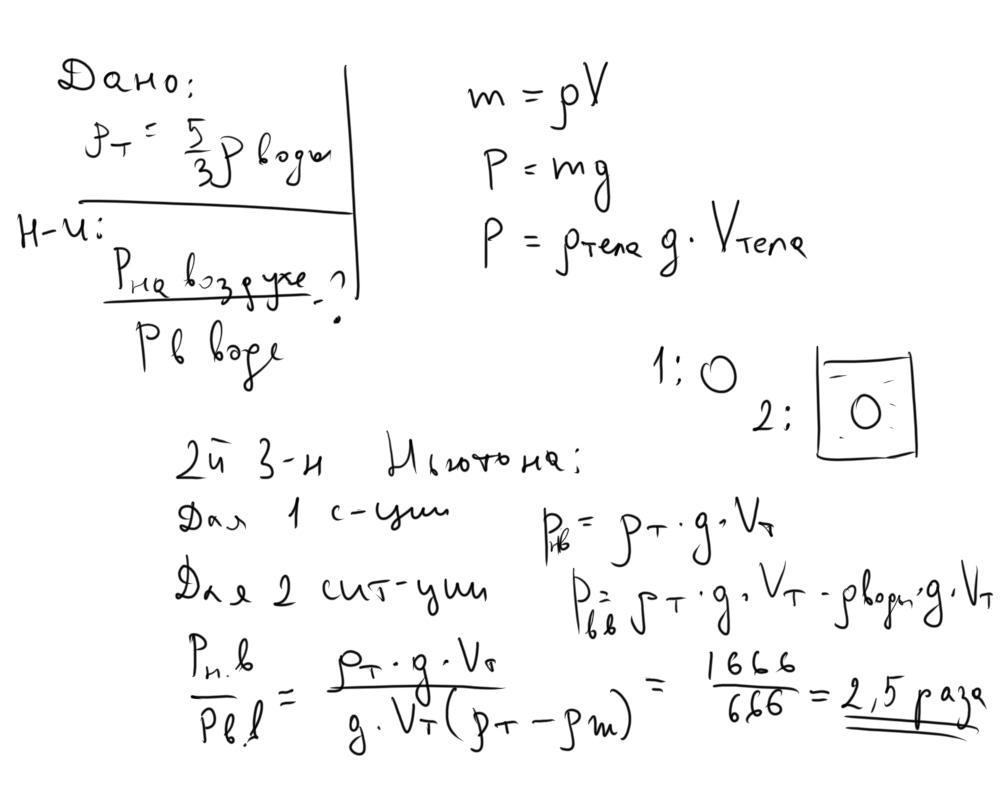 Дано:
ρт = 5/3 ρ воды
Н-и:
Pна воздухе / P в воде - ?
m = ρV
P = mg
P = ρтела g · Vтела
1: O
2: O
2й З-н Ньютона:
Для 1 с-уции Pнв = ρт · g · Vт
Для 2 сит-уции Pвв = ρт · g · Vт - ρводы · g · Vт
Pн.в / Pв.в = ρт · g · Vт / g · Vт (ρт - ρm) = 1666 / 666 = 2,5 раза